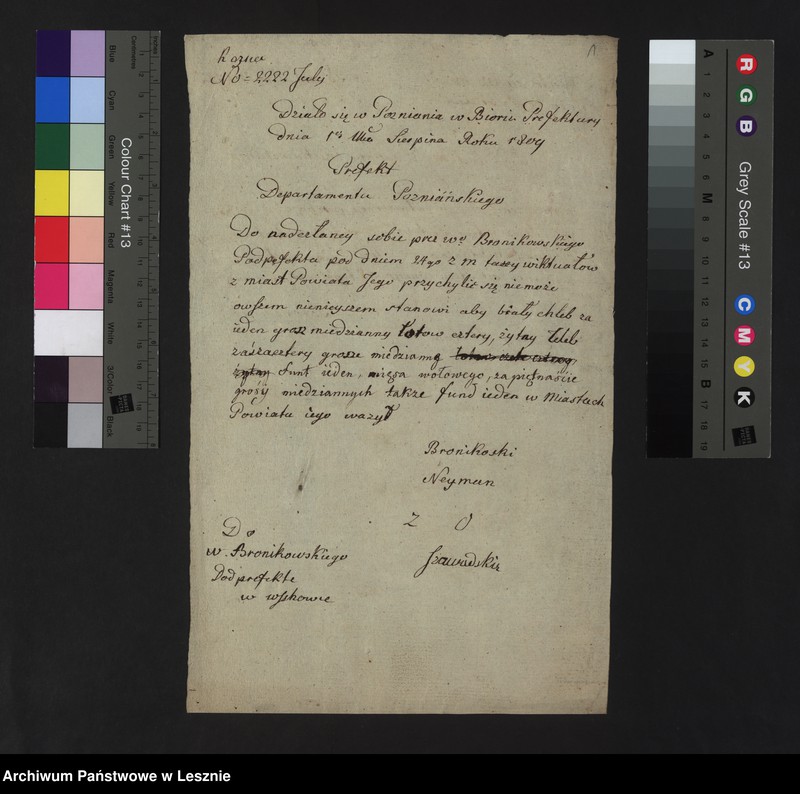 No = 2222 July
1
Działo się w Poznania w Bioriu Prefektury
dnia 1 Sierpina Roku 1809
Prefekt
Departamentu Pozniańskiego
Do nadesłaney sobie prez Bronikowskiego
Podprefekta pod dniem 24go z. m taxy wiktuałów
z miast Powiata Jego przychylić się niemoże
owszem nienieyszem stanowi aby biały chleb za
ieden grosz miedzianny łotow cztery, żytny chleb
zaś za cztery grosze miedzianną
żytny funt ieden, mięsa wołowego, za piętnaście
groszy miedziannych także fund ieden w Miastach
Powiatu iego ważył
Bronikoski
Neyman
Z O
Szawadskie
Do
w. Bronikowskiego
Podprefekte
w wshowie
Archiwum Państwowe w Lesznie
Colour Chart #13
Blue
Cyan
Green
Yellow
Red
Magenta
White
3/Color
Black
Centimetres
Inches
Grey Scale #13
R
G
B
C
M
Y
K
A 1 2 3 4 5 6 M 8 9 10 11 12 13 14 15 B 17 18 19